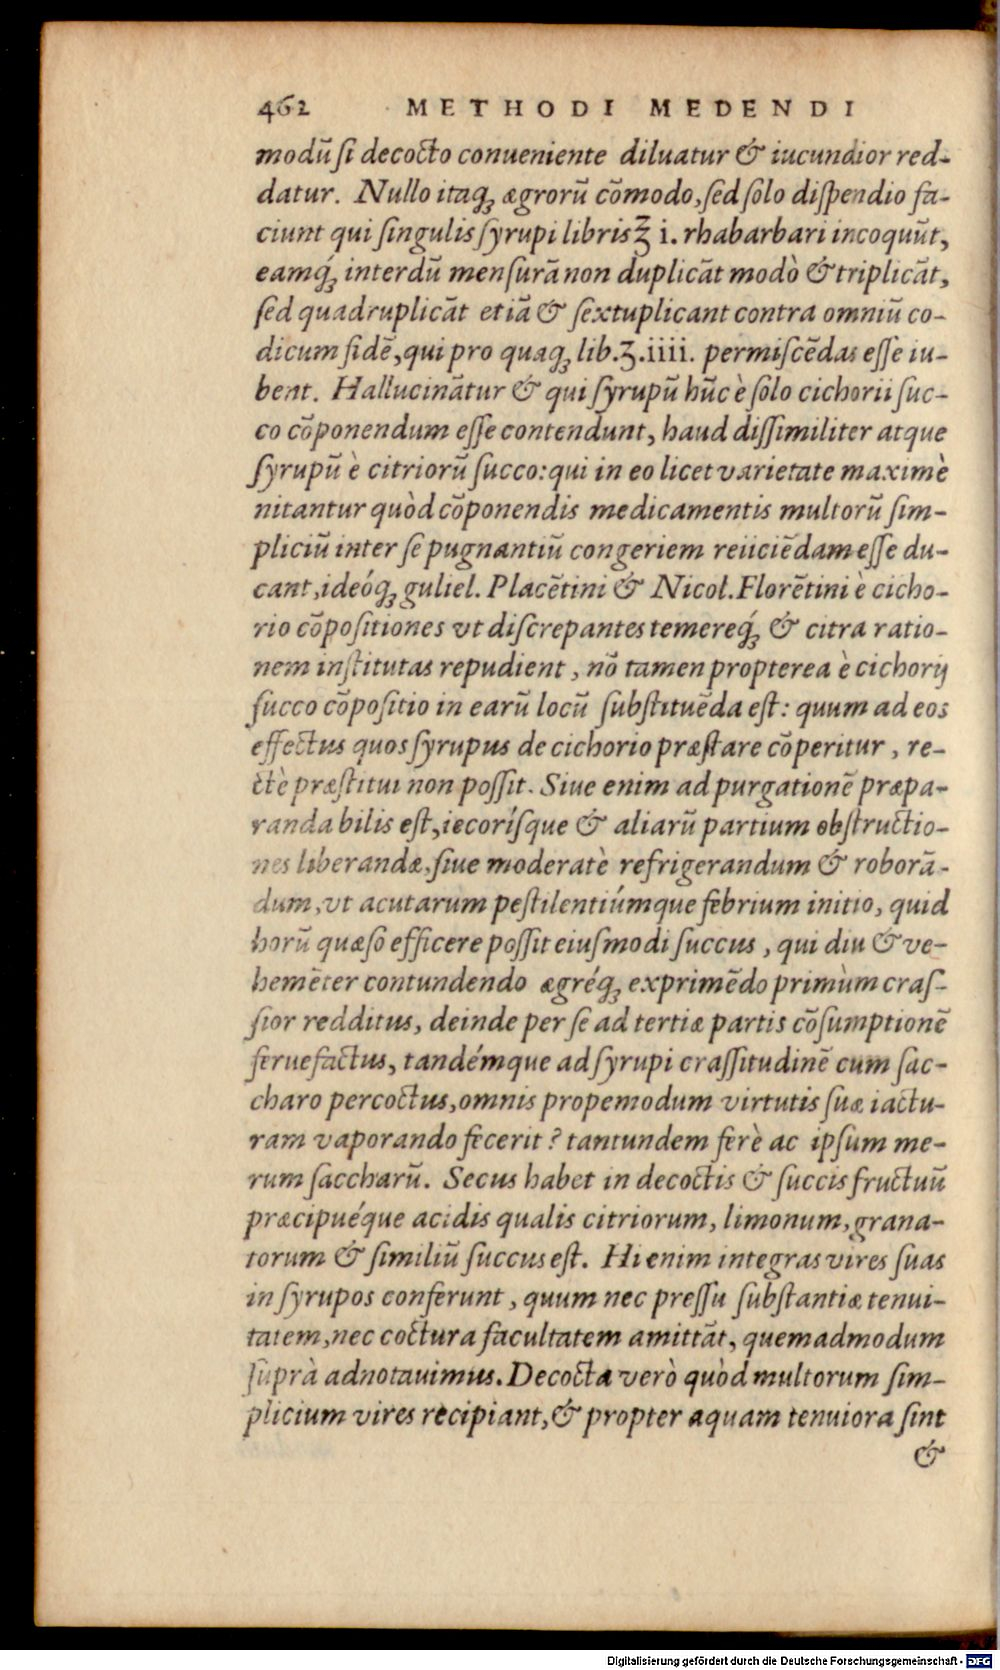 462 METHODI MEDENDI
modū si decocto conueniente diluatur & iucundior red-
datur. Nullo itaq; ægrorū cōmodo, sed solo dispendio fa-
ciunt qui singulis syrupi libris ʒ i. rhabarbari incoquūt,
eamq́; interdū mensurā non duplicāt modò & triplicāt,
sed quadruplicāt etiā & sextuplicant contra omniū co-
dicum fidē, qui pro quaq; lib.ʒ.iiii. permiscēdas esse iu-
bent. Hallucināt̄ur & qui syrupū hūc è solo cichorii suc-
co cōponendum esse contendunt, haud dissimiliter atque
syrupū è citriorū succo: qui in eo licet varietate maximè
nitantur quòd cōponendis medicamentis multorū sim-
pliciū inter se pugnantiū congeriem reiiciēdam esse du-
cant, ideóq; guliel. Placētini & Nicol. Florētini è cicho-
rio cōpositiones vt discrepantes temereq́; & citra ratio-
nem institutas repudient, nō tamen propterea è cichorij
succo cōpositio in earū locū substituēda est: quum ad eos
effectus quos syrupus de cichorio præstare cōperitur, re-
ctè præstitui non possit. Siue enim ad purgationē præpa-
randa bilis est, iecorísque & aliarū partium obstructio-
nes liberandæ, siue moderatè refrigerandum & roborā-
dum, vt acutarum pestilentiúmque febrium initio, quid
horū quæso efficere possit eiusmodi succus, qui diu & ve-
hemēter contundendo ægréq; exprimēdo primùm cras-
sior redditus, deinde per se ad tertiæ partis cōsumptionē
feruefactus, tandémque ad syrupi crassitudinē cum sac-
charo percoctus, omnis propemodum virtutis suæ iactu-
ram vaporando fecerit? tantundem ferè ac ipsum me-
rum saccharū. Secus habet in decoctis & succis fructuū
præcipuéque acidis qualis citriorum, limonum, grana-
torum & similiū succus est. Hi enim integras vires suas
in syrupos conferunt, quum nec pressu substantiæ tenui-
tatem, nec coctura facultatem amittāt, quemadmodum
suprà adnotauimus. Decocta verò quòd multorum sim-
plicium vires recipiant, & propter aquam tenuiora sint
&
Digitalisierung gefördert durch die Deutsche Forschungsgemeinschaft - DFG